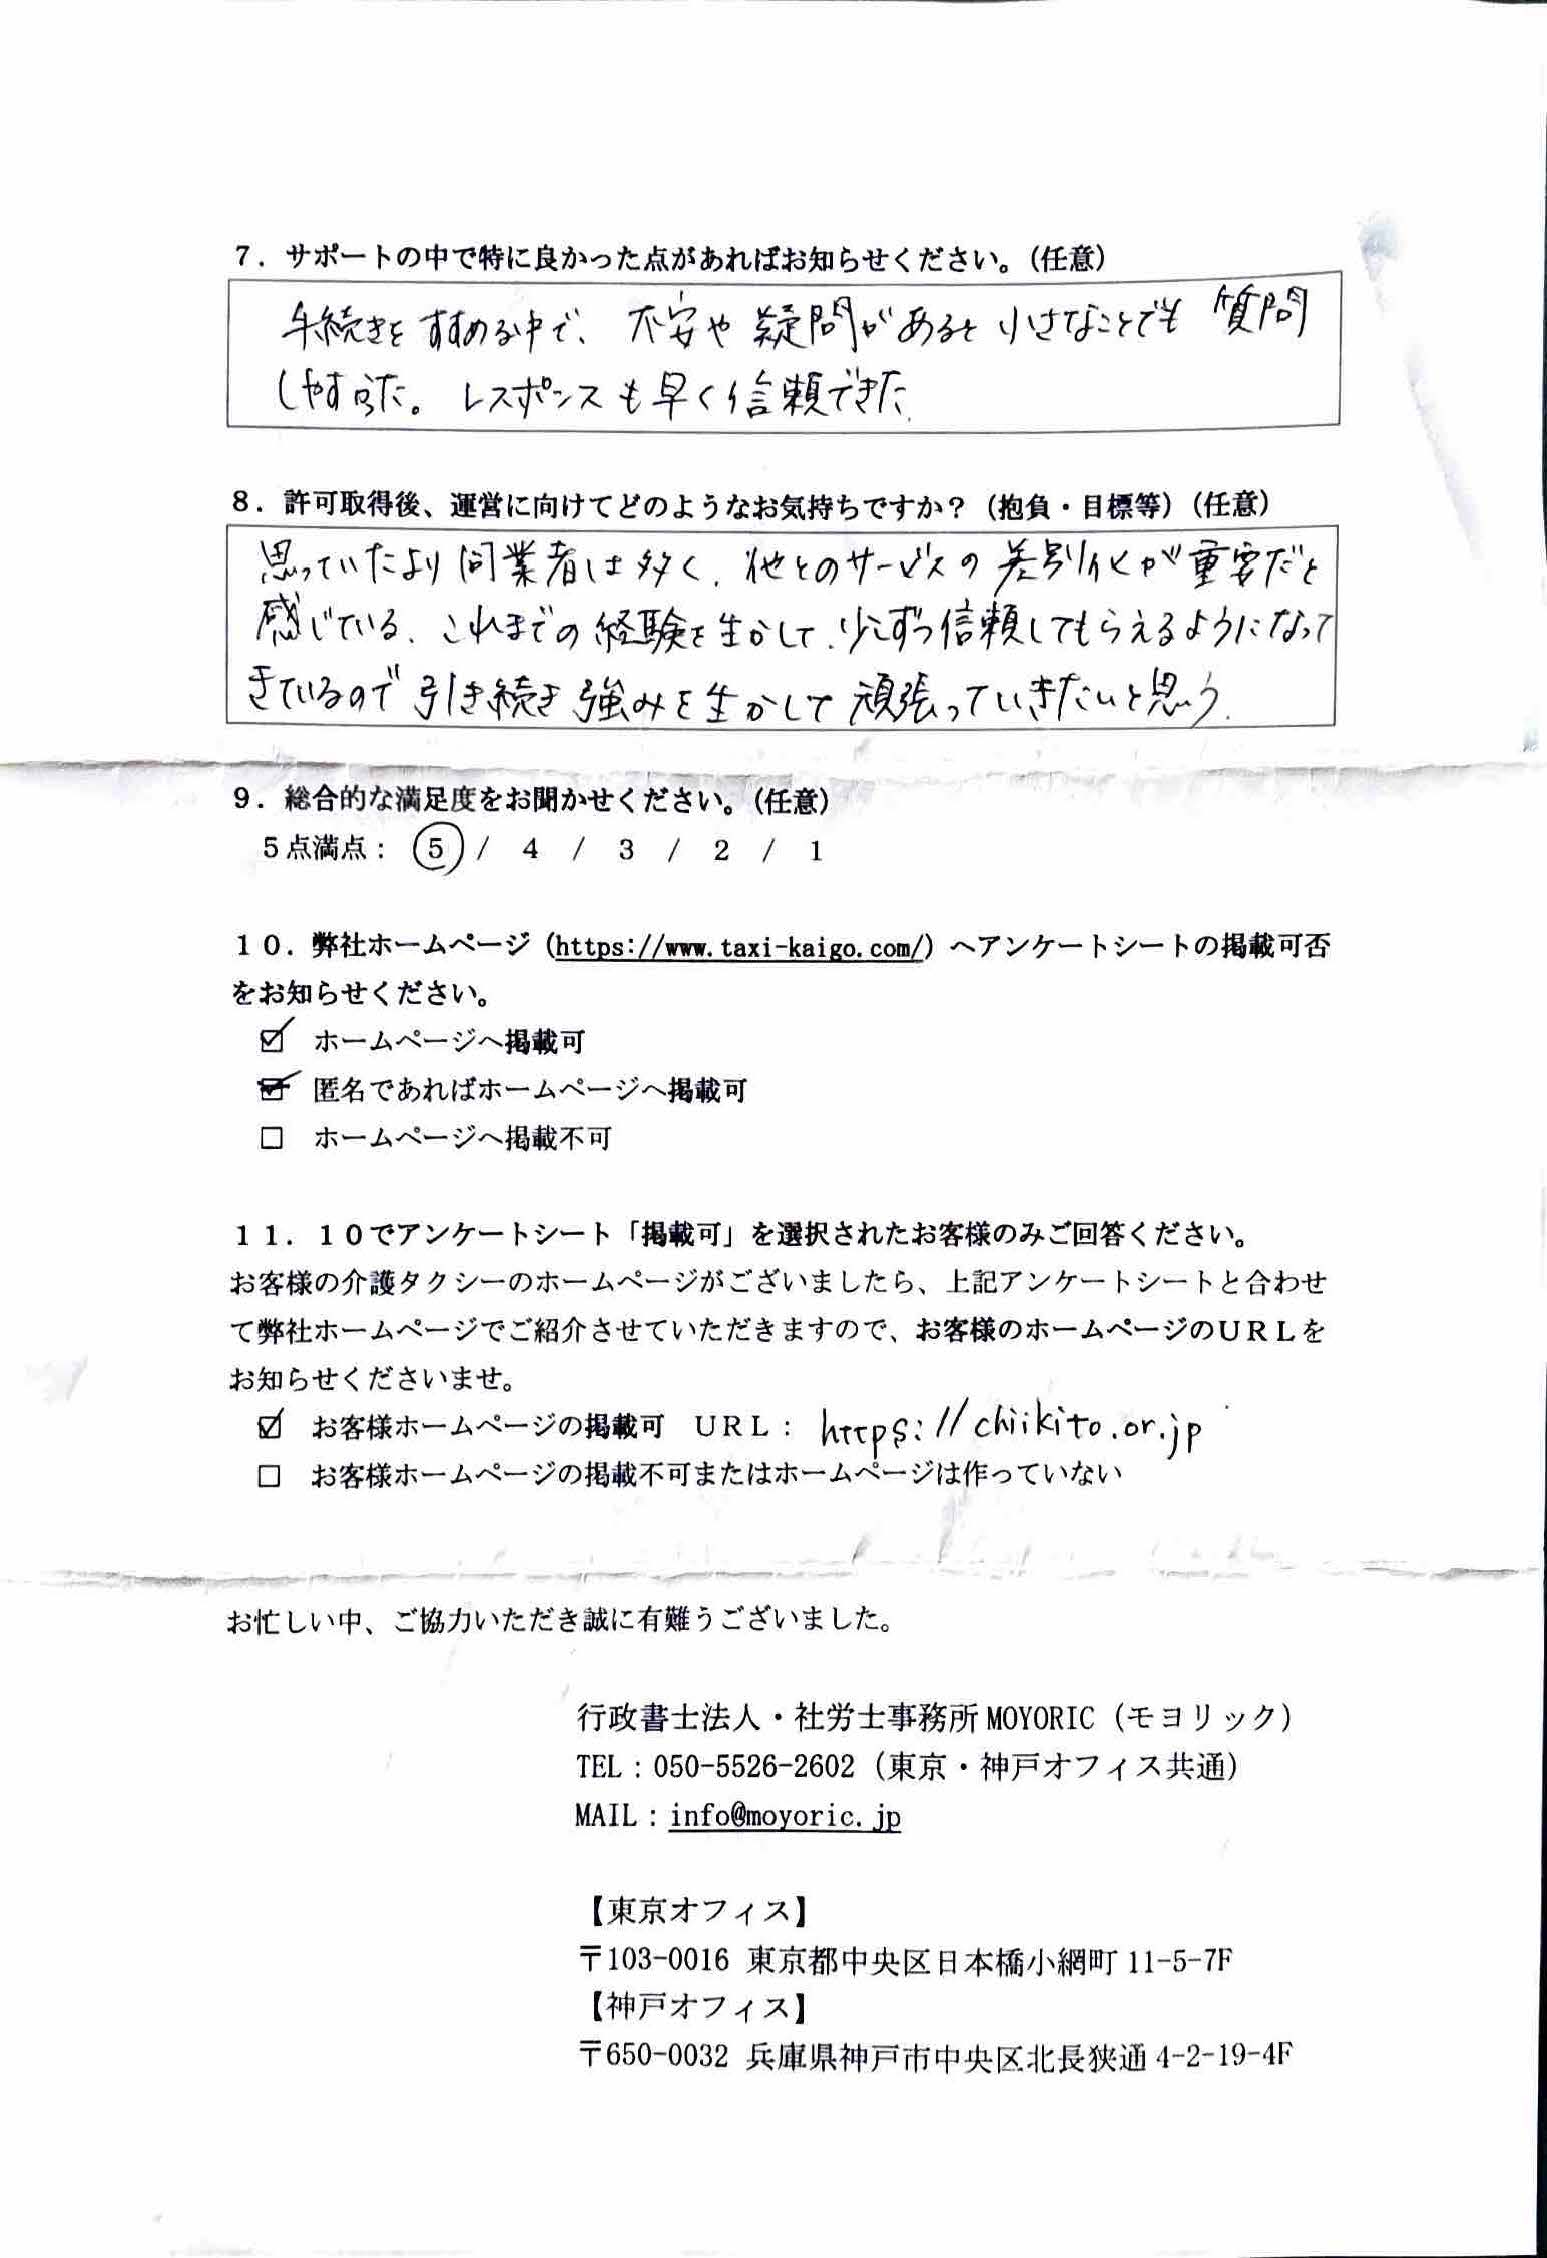 ７．サポートの中で特に良かった点があればお知らせください。（任意）
手続きをすすめる中で、不安や疑問があると小さなことでも質問
しやすかった。レスポンスも早く信頼できた.
８．許可取得後、運営に向けてどのようなお気持ちですか？（抱負・目標等）（任意）
思っていたより同業者は多く、他とのサービスの差別化が重要だと
感じている、これまでの経験を生かして、少しずつ信頼してもらえるようになって
きているので引き続き強みを生かして頑張っていきたいと思う.
９．総合的な満足度をお聞かせください。（任意）
５点満点： 5 / 4 / 3 / 2 / 1
１０．弊社ホームページ（https://www.taxi-kaigo.com/）へアンケートシートの掲載可否
をお知らせください。
☑ ホームページへ掲載可
☑ 匿名であればホームページへ掲載可
□ ホームページへ掲載不可
１１．１０でアンケートシート「掲載可」を選択されたお客様のみご回答ください。
お客様の介護タクシーのホームページがございましたら、上記アンケートシートと合わせ
て弊社ホームページでご紹介させていただきますので、お客様のホームページのＵＲＬを
お知らせくださいませ。
☑ お客様ホームページの掲載可 ＵＲＬ： https://chiikito.or.jp
□ お客様ホームページの掲載不可またはホームページは作っていない
お忙しい中、ご協力いただき誠に有難うございました。
行政書士法人・社労士事務所 MOYORIC（モヨリック）
TEL：050-5526-2602（東京・神戸オフィス共通）
MAIL：info@moyoric.jp
【東京オフィス】
〒103-0016 東京都中央区日本橋小網町 11-5-7F
【神戸オフィス】
〒650-0032 兵庫県神戸市中央区北長狭通 4-2-19-4F